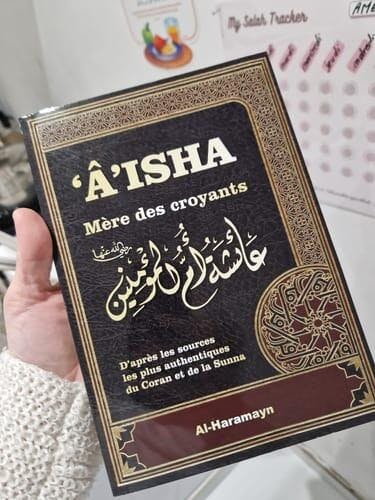 My Salah Tracker
'Â'ISHA
Mère des croyants
رضي الله عنها
عائشة أم المؤمنين
D'après les sources
les plus authentiques
du Coran et de la Sunna
Al-Haramayn